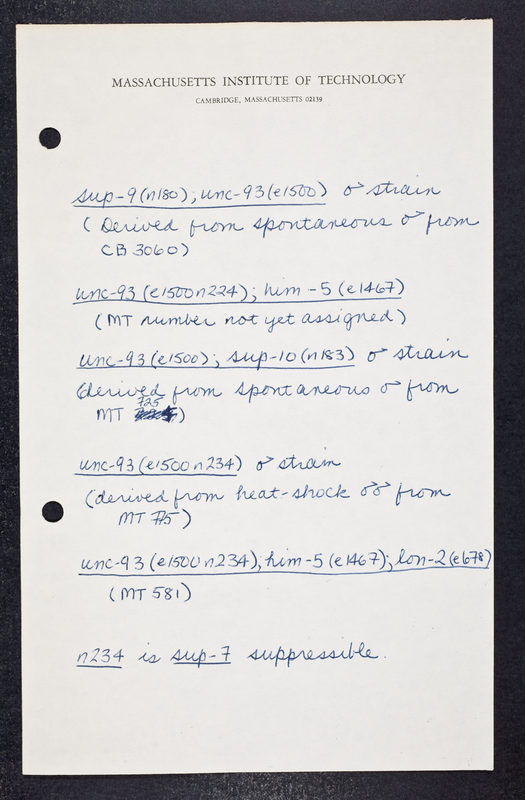 MASSACHUSETTS INSTITUTE OF TECHNOLOGY
CAMBRIDGE, MASSACHUSETTS 02139
sup-9(n180); unc-93(e1500) ♂ strain
(Derived from spontaneous ♂ from
CB 3060)
unc-93(e1500n224); him-5(e1467)
(MT number not yet assigned)
unc-93(e1500); sup-10(n183) ♂ strain
(derived from spontaneous ♂ from
725
MT )
unc-93(e1500n234) ♂ strain
(derived from heat-shock ♂♂ from
MT 715)
unc-93(e1500n234); him-5(e1467); lon-2(e678)
(MT 581)
n234 is sup-7 suppressible.